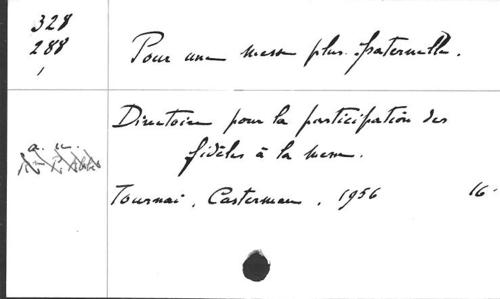 328
288
Pour une messe plus fraternelle.
Directoire pour la participation des
fidèles à la messe.
a. u.
Tournai, Casterman, 1956 16-